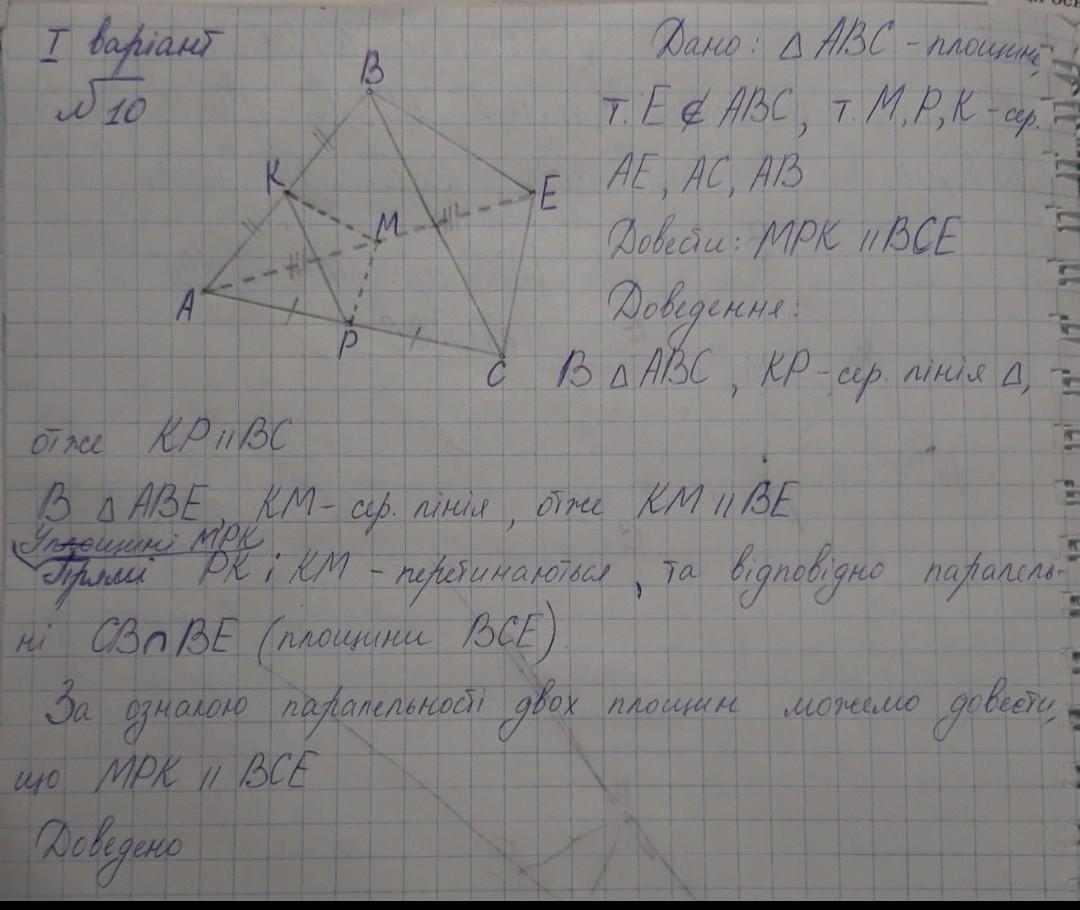 I варіант
№10
B
K
M
E
A
P
C
Дано: △ ABC - площина,
т. E ∉ ABC, т. M, P, K - сер.
AE, AC, AB
Довести: MPK || BCE
Доведення:
В △ ABC, KP - сер. лінія △,
отже KP || BC
В △ ABE, KM - сер. лінія, отже KM || BE
У площині MPK
Прямі PK і KM - перетинаються, та відповідно паралель-
ні CB ∩ BE (площини BCE)
За ознакою паралельності двох площин можемо довести,
що MPK || BCE
Доведено